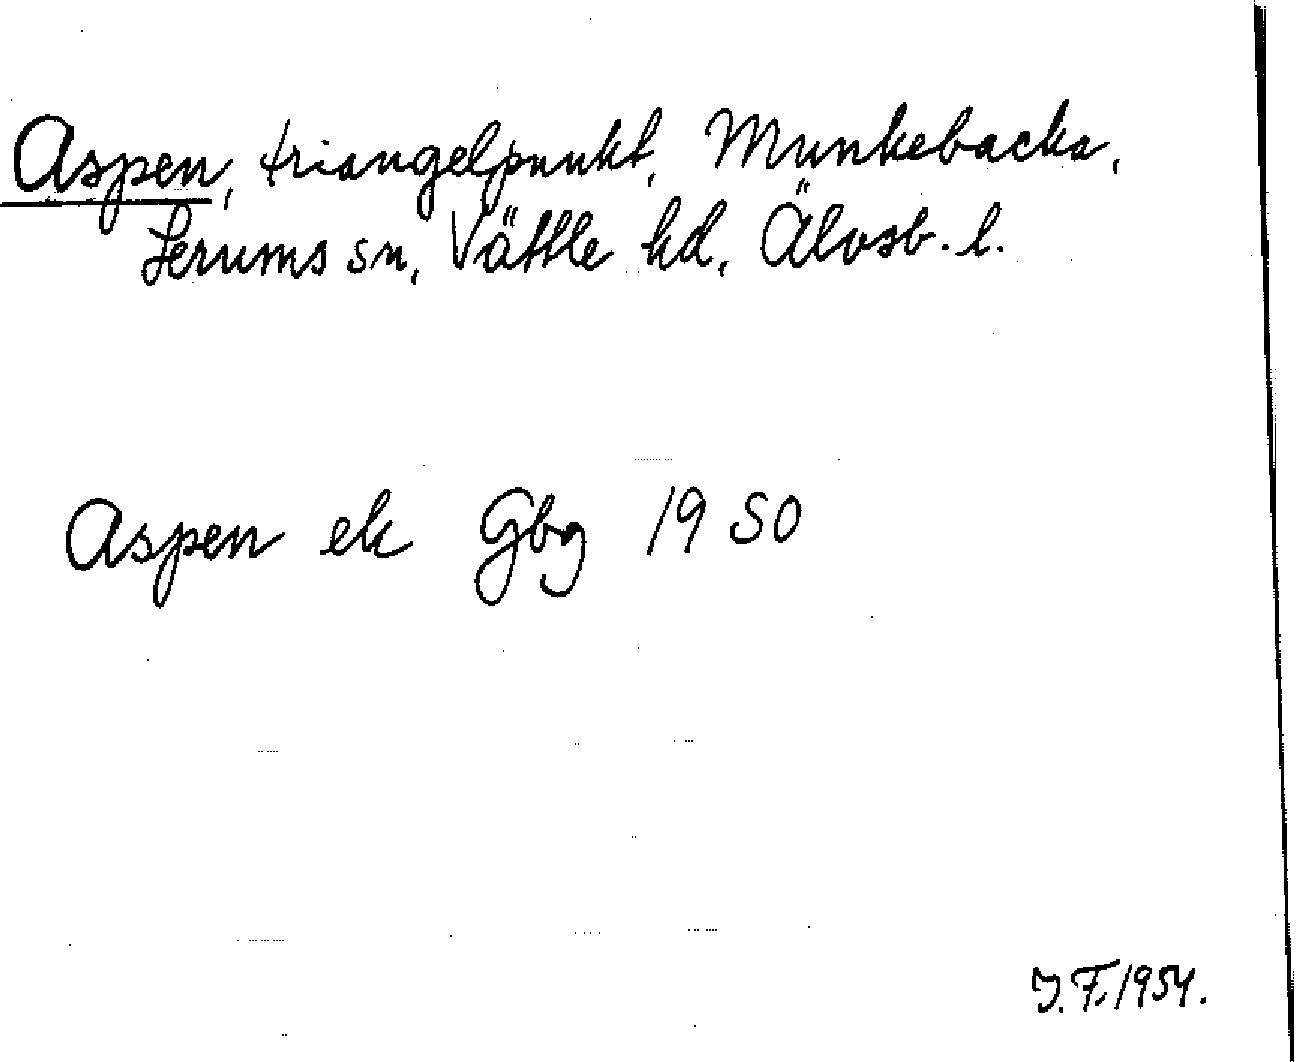 Aspen, triangelpunkt, Munkebacka,
Lerums sn, Vättle hd, Älvsb. l.
Aspen ek Gbg 1950
J.F. 1954.